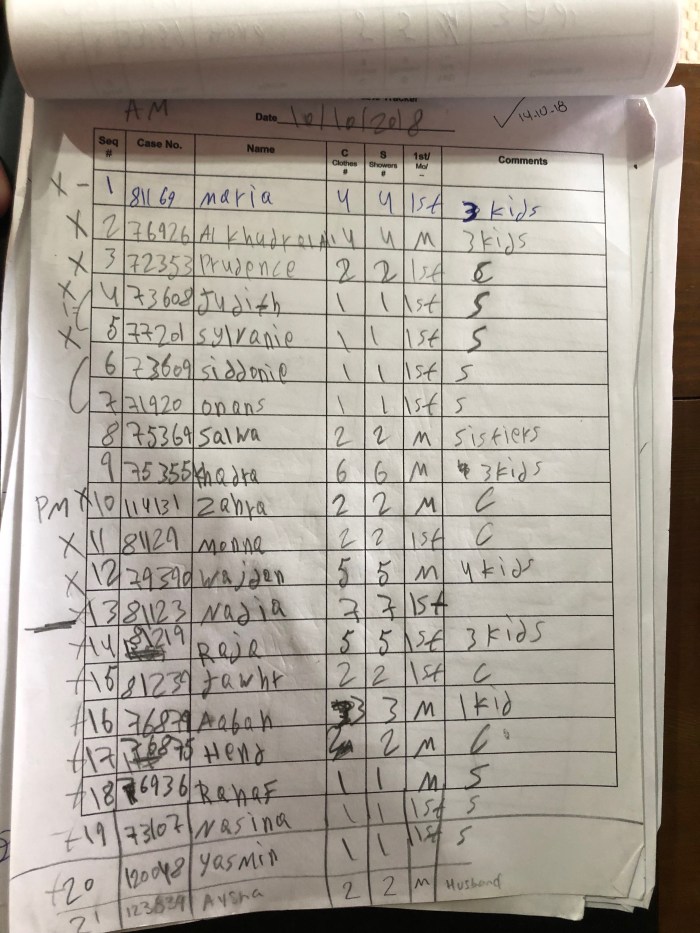 AM
Tracker
Date 10/10/2018
✓ 14.10.18
Seq # Case No. Name C Clothes # S Showers # 1st/ Mo/ – Comments
X - 1 81169 maria 4 4 1st 3 kids
X 2 76926 4 4 M 3 kids
X 3 72353 Prudence 2 2 1st C
X 4 73608 Judith 1 1 1st S
X 5 77201 sylvanie 1 1 1st S
6 73609 siddonie 1 1 1st S
7 71920 onans 1 1 1st S
8 75369 Salwa 2 2 M sistiers
9 75355 Khadra 6 6 M 3 kids
PM X 10 114131 Zahra 2 2 M C
X 11 81129 Monna 2 2 1st C
X 12 79390 Wajden 5 5 M 4 kids
X 13 81123 Nadia 7 7 1st
X 14 81219 Raja 5 5 1st 3 kids
X 15 81239 Jawhr 2 2 1st C
X 16 76879 Aabah 3 3 M 1 kid
X 17 Hend 2 M C
X 18 76936 Rahaf 1 1 M S
X 19 73107 Nasina 1 1 1st S
X 20 120048 Yasmin 1 1 1st S
21 123839 Aysha 2 2 M Husband